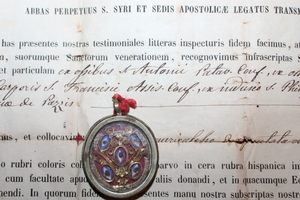 ABBAS PERPETUUS S. SYRI ET SEDIS APOSTOLICÆ LEGATUS TRANSM
has presentes nostras testimoniales litteras inspecturis fidem facimus, at
m, suorumque Sanctorum venerationem, recognovimus infrascriptas S
et particulam ex ossibus S. Antonii Patav. Conf., ex
Corporis S. Francisci Assis. Conf., ex indusio S. Phil
de
, et collocavim
no rubri coloris c parvo in cera rubra hispanica in
cum facultate apud s aliis donandi, et quacumque Ec
In quorum fidem presentes manu nostra subscriptas nostr